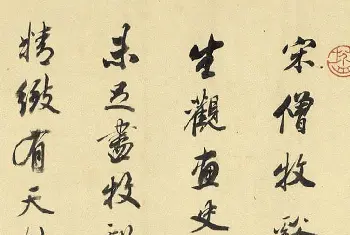 宋僧牧谿
生觀畫史
未足盡牧
精緻有天